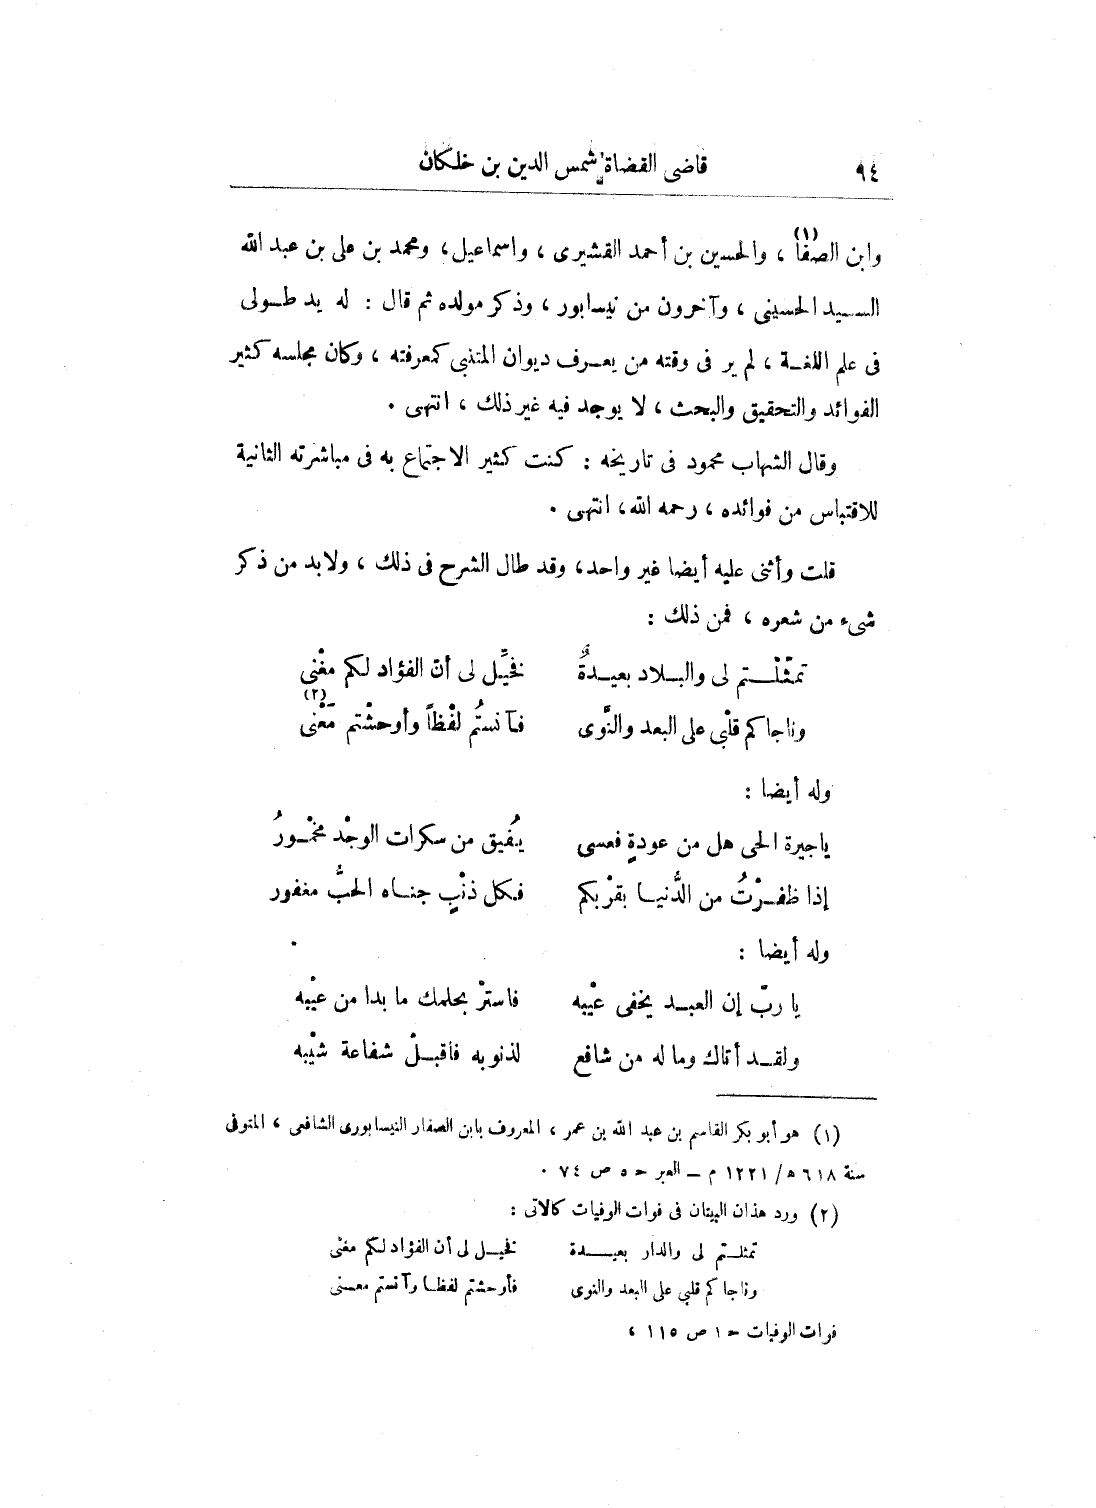 ٩٤ قاضى القضاة شمس الدين بن خلكان
وابن الصفا (١) ، والحسين بن أحمد القشيرى ، واسماعيل، ومحمد بن على بن عبد الله
السيد الحسينى ، وآخرون من نيسابور ، وذكر مولده ثم قال : له يد طولى
فى علم اللغة ، لم ير فى وقته من يعرف ديوان المتنبى كمعرفته ، وكان مجلسه كثير
الفوائد والتحقيق والبحث ، لا يوجد فيه غير ذلك ، انتهى .
وقال الشهاب محمود فى تاريخه : كنت كثير الاجتماع به فى مباشرته الثانية
للاقتباس من فوائده ، رحمه الله، انتهى .
قلت وأثنى عليه أيضا غير واحد، وقد طال الشرح فى ذلك ، ولابد من ذكر
شىء من شعره ، فمن ذلك :
تمثّلْتم لى والبلاد بعيدةٌ فخيِّل لى أنّ الفؤاد لكم مغْنى
وناجاكم قلْبى على البعد والنَّوى فآنستُم لفْظاً وأوحشْتم مَعْنى (٢)
وله أيضا :
ياجيرة الحى هل من عودةٍ فعسى يُفيق من سكرات الوجْد مخْمورُ
إذا ظفرْتُ من الدُّنيا بقرْبكم فكل ذنْبٍ جناه الحبُّ مغفور
وله أيضا :
يا ربّ إن العبد يخفى عيْبه فاسترْ بحلمك ما بدا من عيْبه
ولقد أتاك وما له من شافع لذنوبه فاقبلْ شفاعة شيْبه
(١) هو أبو بكر القاسم بن عبد الله بن عمر ، المعروف بابن الصفار النيسابورى الشافعى ، المتوفى
سنة ٦١٨ ه/ ١٢٢١ م ــ العبر ح ٥ ص ٧٤ .
(٢) ورد هذان البيتان فى فوات الوفيات كالآتى :
تمثلتم لى والدار بعيدة فخيل لى أن الفؤاد لكم مغنى
وناجاكم قلبي على البعد والنوى فأوحشتم لفظا وآنستم معنى
فوات الوفيات ح ١ ص ١١٥ ،